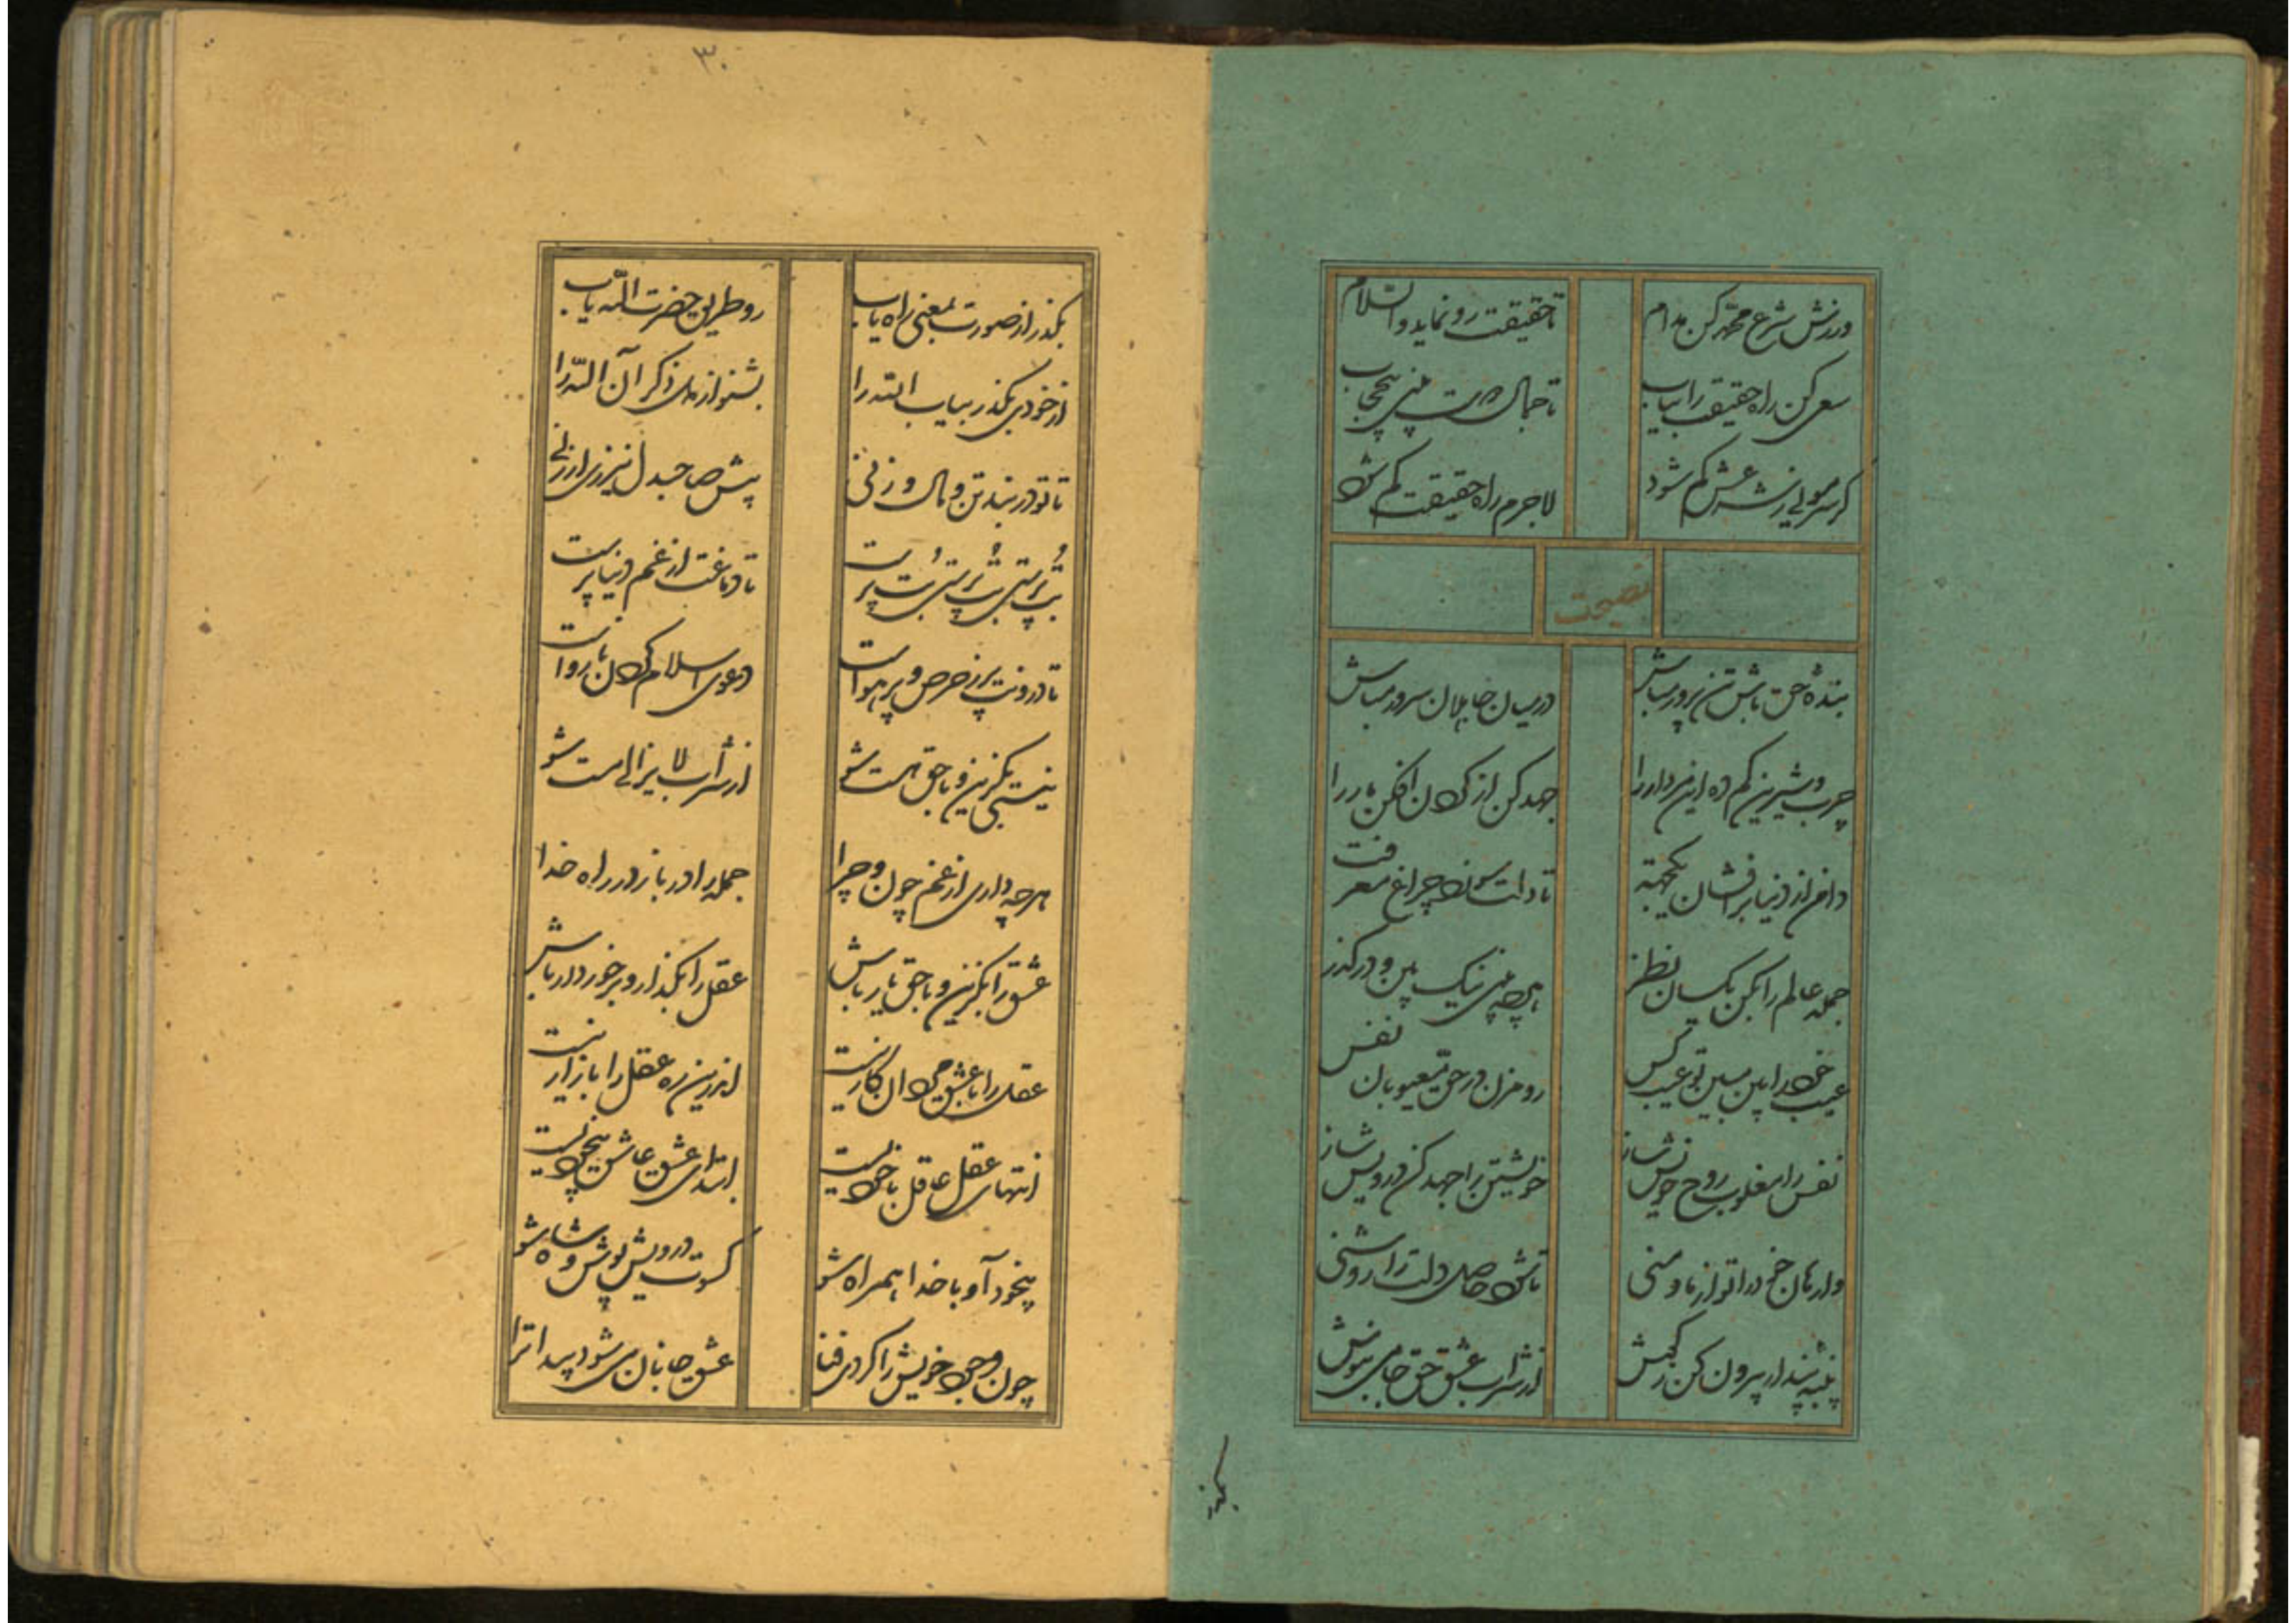 ورزش شرع محمد کن مدام
تا حقیقت رو نماید والسلام
سعی کن راه حقیقت را بیاب
تا جمال دوست بینی بیحجاب
گر سر مویی ز شرعش کم شود
لاجرم راه حقیقت گم شود
نصیحت
بندهٔ حق باش تن پرور مباش
در میان جاهلان سرور مباش
چرب و شیرین کم ده این مردار را
جهد کن از گردن افکن بار را
دامن از دنیا برافشان یکجهته
تا دلت سوزد چراغ معرفت
جمله عالم را بکن یکسان نظر
هرچه بینی نیک بین و درگذر
عیب خود را بین مبین تو عیب کس
رو مزن در حق معیوبان نفس
نفس را مغلوب روح خویش ساز
خویشتن را جهد کن درویش ساز
وارهان خود را تو از ما و منی
تا شود حاصل دلت را روشنی
پنبه پندار بیرون کن ز گوش
از شراب عشق حق جامی بنوش
بگذر
۳۰
بگذر از صورت بمعنی راه یاب
رو طریق حضرت الله یاب
از خودی بگذر بیاب الله را
بشنو از ذکر آن الله را
تا تو در بند تن و مال و زنی
پیش صاحبدل نیرزی ارزنی
بت پرستی بت پرستی بت پرست
تا دماغت از غم دنیا پرست
تا درونت پر ز حرص و پر هواست
دعوی اسلام کردن نارواست
نیستی بگزین و با حق هست شو
از شراب لایزالی مست شو
هرچه داری از غم چون و چرا
جمله را در باز در راه خدا
عشق را بگزین و با حق یار باش
عقل را بگذار و برخوردار باش
عقل را با عشق میدان کار نیست
اندرین ره عقل را بازار نیست
انتهای عقل عاقل با خودیست
ابتدای عشق عاشق بیخودیست
بیخود آ و با خدا همراه شو
کسوت درویش پوش و شاه شو
چون وجود خویش را کردی فنا
عشق جانان می شود پیدا ترا